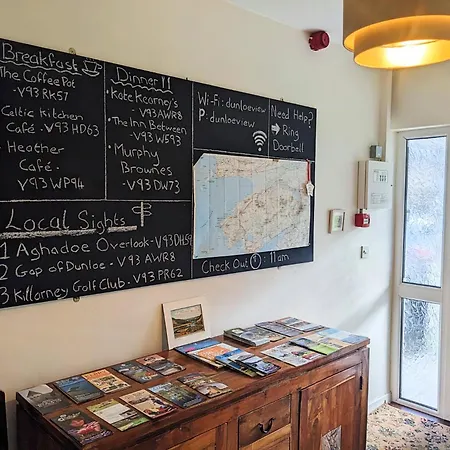 Breakfast
The Coffee Pot -
V93 RK57
Celtic Kitchen
Café - V93 HD63
Heather
Café -
V93 WP94
Dinner
Kate Kearney's
- V93 AWR8
The Inn Between
- V93 W593
Murphy
Brownes
- V93 DW73
Wi-Fi: dunloeview
P: dunloeview
Need Help?
Ring
Doorbell
Local Sights
1 Aghadoe Overlook - V93 DH59
2 Gap of Dunloe - V93 AWR8
3 Killarney Golf Club - V93 PR62
Check Out : 11am